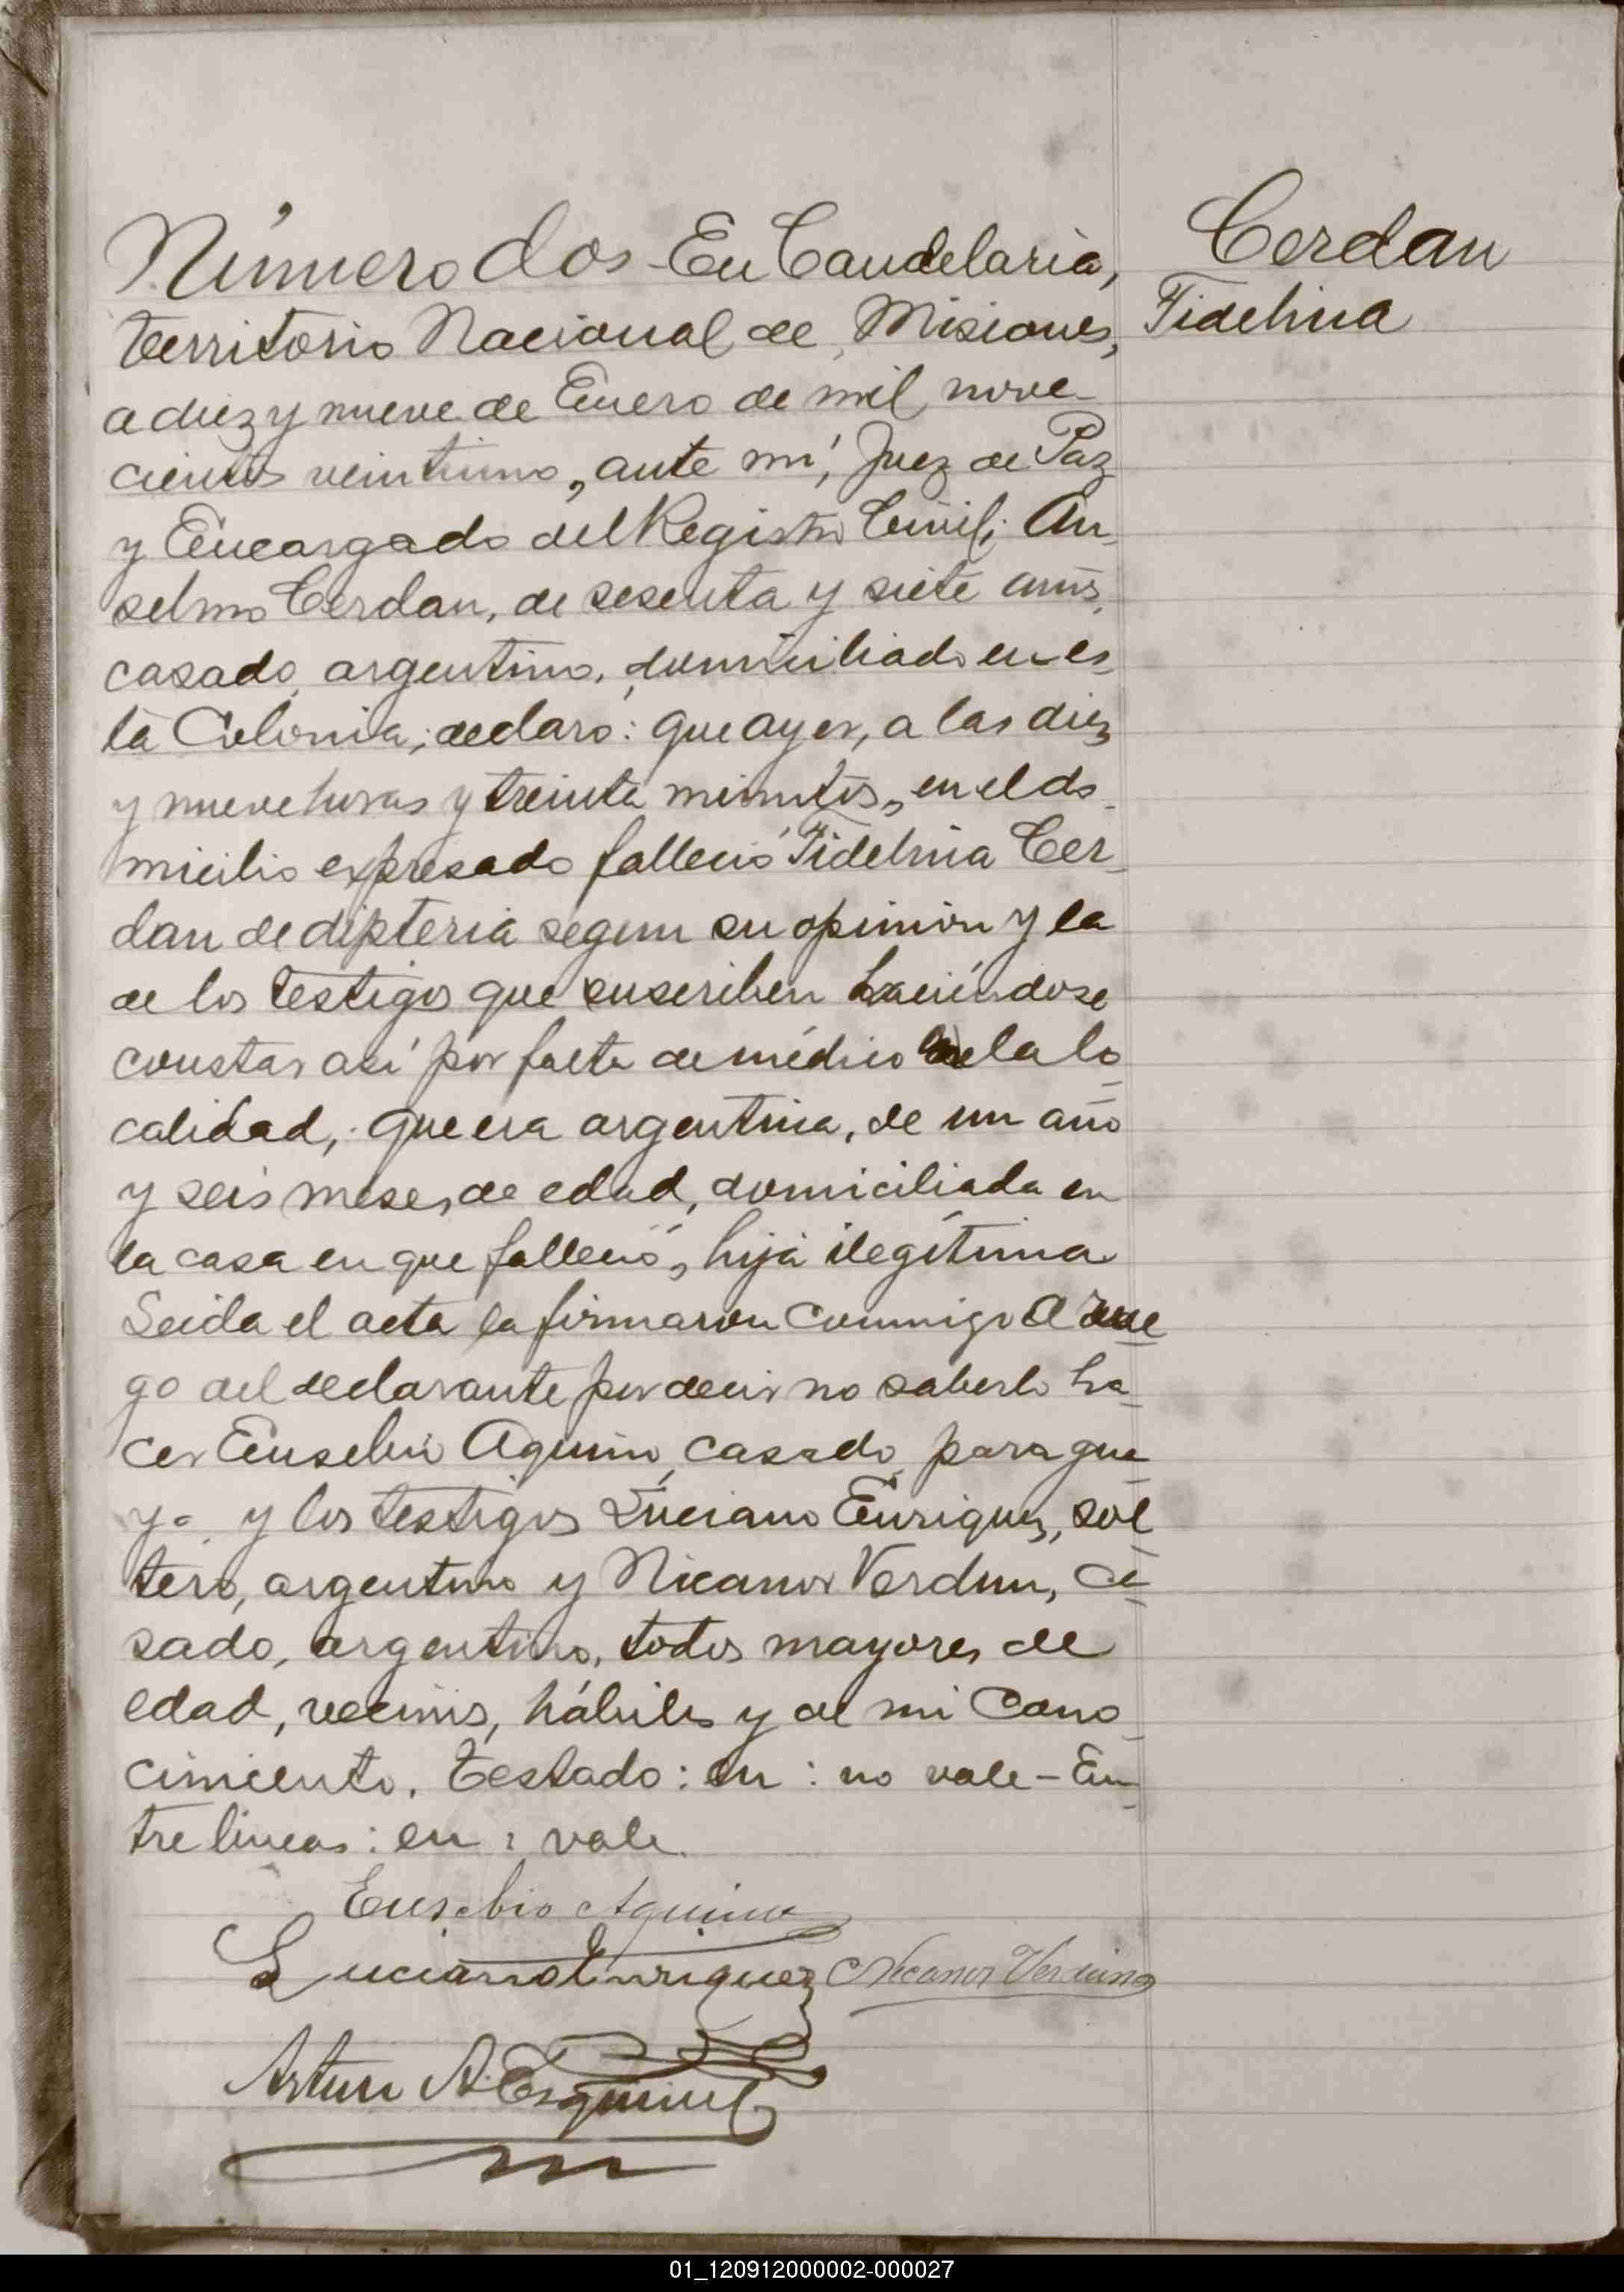 Número dos - En Candelaria,
territorio Nacional de Misiones,
a diez y nueve de Enero de mil nove-
cientos veintiuno, ante mí, Juez de Paz
y Encargado del Registro Civil; An-
selmo Cerdan, de sesenta y siete años,
casado, argentino, domiciliado en es-
ta Colonia; declaró: que ayer, a las diez
y nueve horas y treinta minutos, en el do-
micilio expresado falleció Fidelina Cer-
dan de dipteria segun su opinión y la
de los testigos que suscriben haciéndose
constar así por falta de médico en la lo-
calidad, que era argentina, de un año
y seis meses de edad, domiciliada en
la casa en que falleció, hija ilegítima
Leida el acta la firmaron conmigo a rue-
go del declarante por decir no saberlo ha-
cer Eusebio Aquino, casado, paragua-
yo y los testigos Luciano Enriquez, sol-
tero, argentino y Nicanor Verdun, ca-
sado, argentino, todos mayores de
edad, vecinos, hábiles y de mi cono-
cimiento. Testado: en: no vale - En-
tre lineas: en: vale.
Eusebio Aquino
Luciano Enriquez Nicanor Verdun
Arturo A. Esquivel
Cerdan
Fidelina
01_120912000002-000027